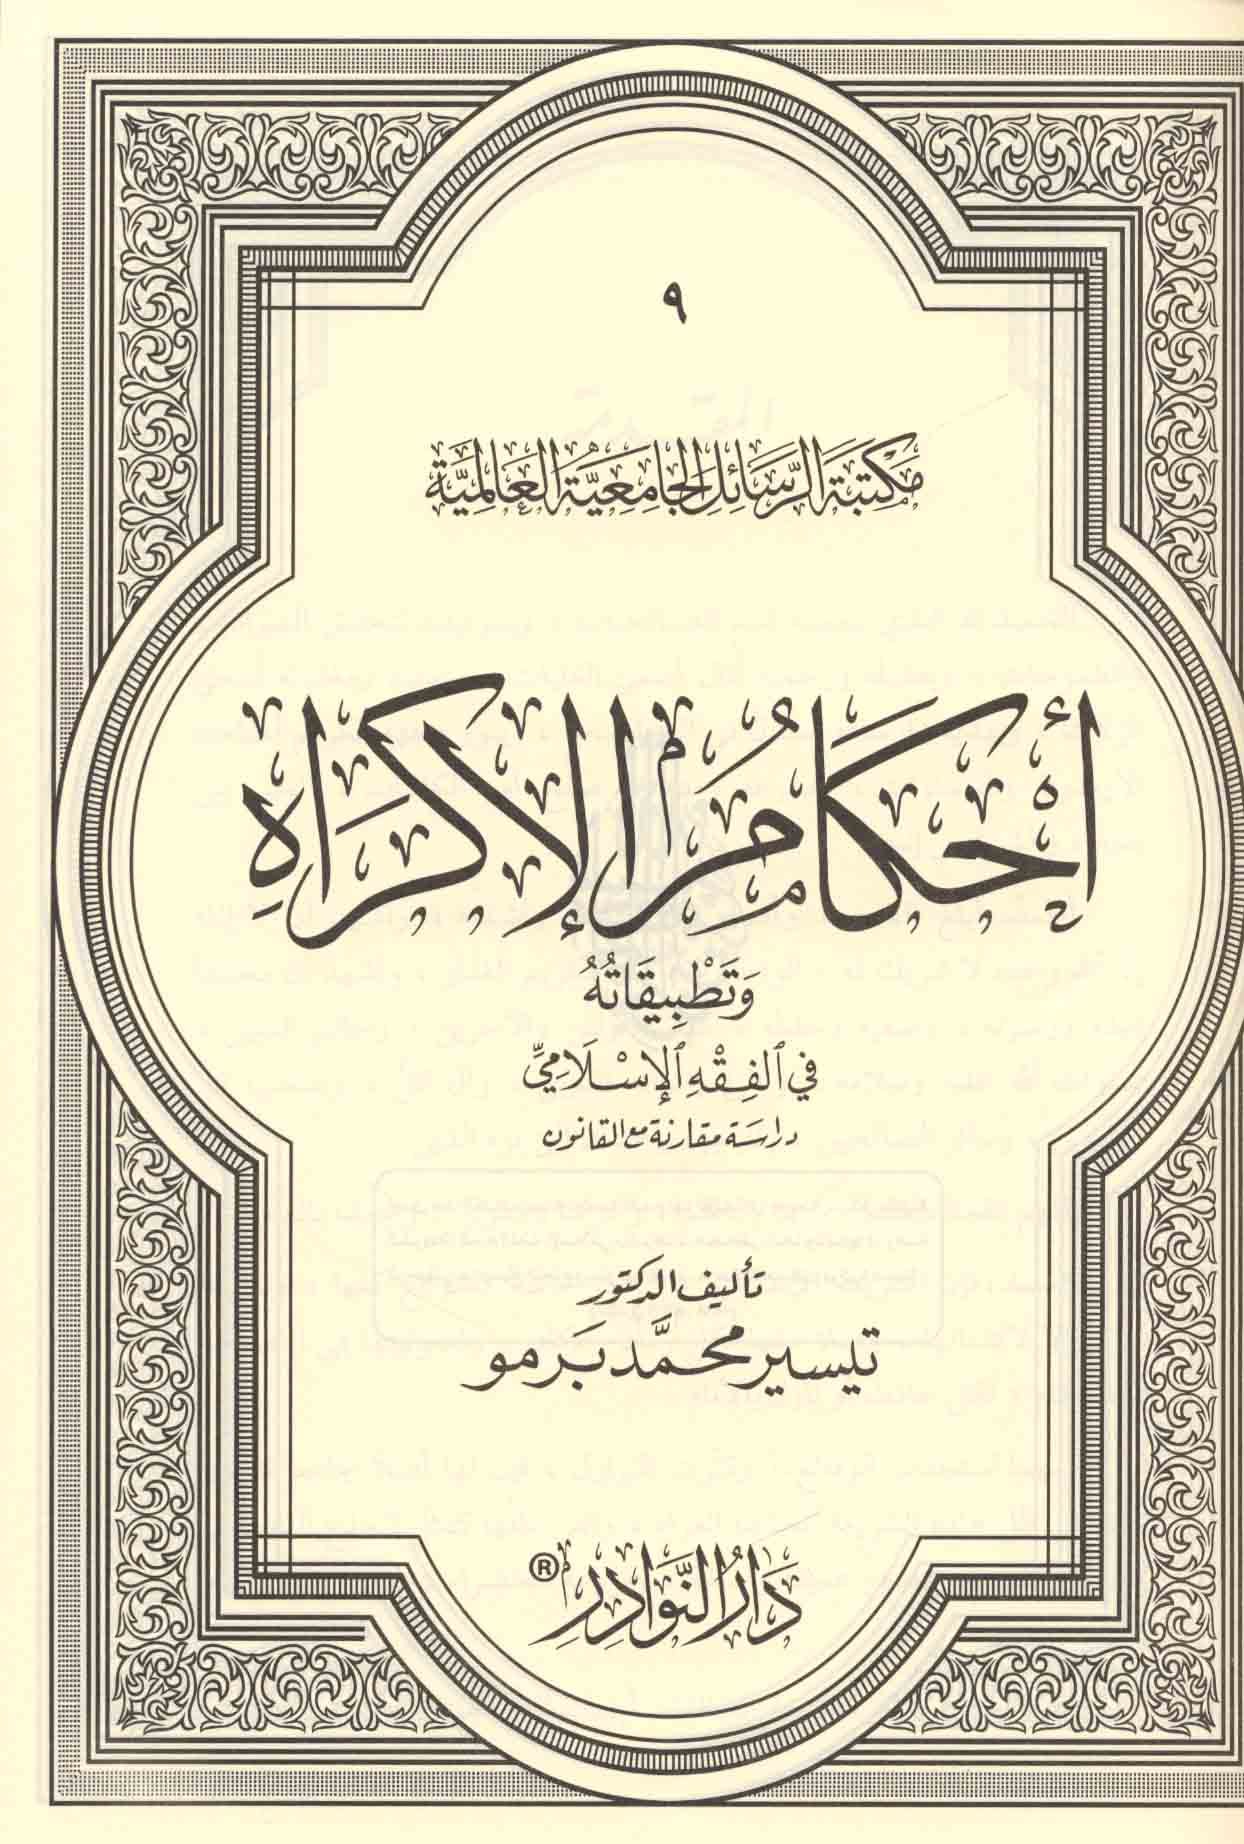 ٩
مَكتَبَة الرَّسَائِلِ الجَامِعِيَّة العَالميَّة
أَحْكَامُ الإِكْرَاهِ
وَتَطْبِيقَاتُهُ
في الفِقْهِ الإِسْلَامِيِّ
دراسَة مقارنة مع القانون
تأليف الدكتور
تيسير محمَّد بَرمو
دَارُ النَّوَادِرِ ®